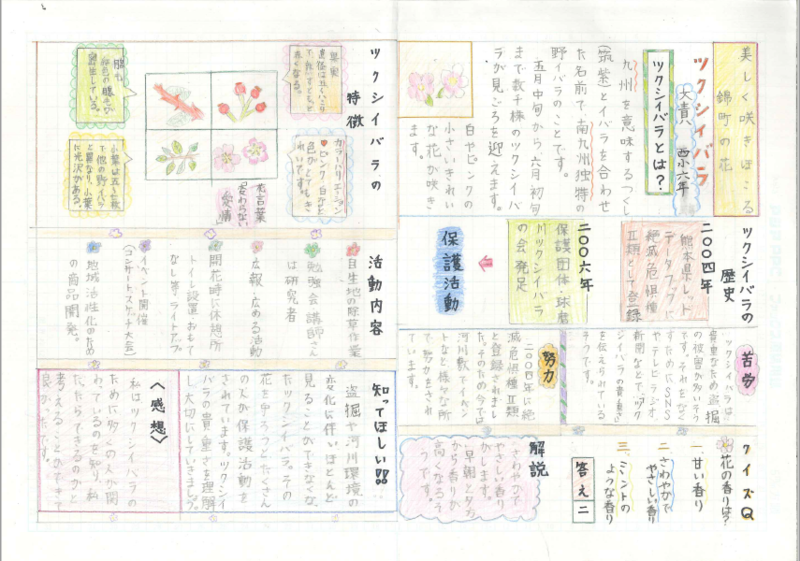 美しく咲きほこる
錦町の花
ツクシイバラ
大青八 西小六年
ツクシイバラとは?
九州を意味するつくし
(筑紫)とイバラを合わせ
た名前で南九州独特の
野イバラのことです。
五月中旬から六月初旬
まで数千株のツクシイバ
ラが見ごろを迎えます。
白やピンクの
小さいきれい
な花が咲き
ます。
ツクシイバラの
歴史
二〇〇四年
熊本県レット
データブックに
絶滅危惧種
Ⅱ類として登録
二〇〇六年
保護団体・球磨
川ツクシイバラ
の会発足
保護活動
苦労
ツクシイバラは
貴重なため盗掘
の被害が多いそう
です。それをなく
すためにSNS
やテレビラジオ、
新聞などでツク
シイバラの貴重さ
を伝えられている
そうです。
努力
二〇〇四年に絶
滅危惧種Ⅱ類
と登録されまし
た。そのため今では
河川敷でイベン
トなどと様々な所
で努力をされ
ています。
クイズQ
花の香りは?
一、甘い香り
二、さわやかで
やさしい香り
三、ミントの
ような香り
答え二
解説
さわやかで
やさしい香り
がします。
早朝と夕方
から香りが
高くなるそ
うです。
ツクシイバラの
特徴
果実
真っ赤になる。
カラーバリエーション
ピンク・白など
色がとてもき
れいです。
花言葉
「変わらない
愛情」
小葉は五〜七枚
で他の野イバラ
と異なり、小葉
に光沢がある。
活動内容
自生地の除草作業
勉強会 講師さん
は研究者
広報・広める活動
開花時に休憩所
トイレ設置、おもて
なし等、ライトアップ
イベント開催
(コンサート、スケッチ大会)
地域活性化のため
の商品開発。
知ってほしい!!
盗掘や河川環境の
変化に伴いほとんど
見ることのできなくな
たツクシイバラ。その
花を守ろうとたくさん
の人が保護活動を
されています。ツクシイ
バラの貴重さを理解
し大切にしていきましょう。
〈感想〉
私はツクシイバラの
ために多くの人が関
わっているのを知り、私
だったらできるのかと
考えることができて
良かったです。